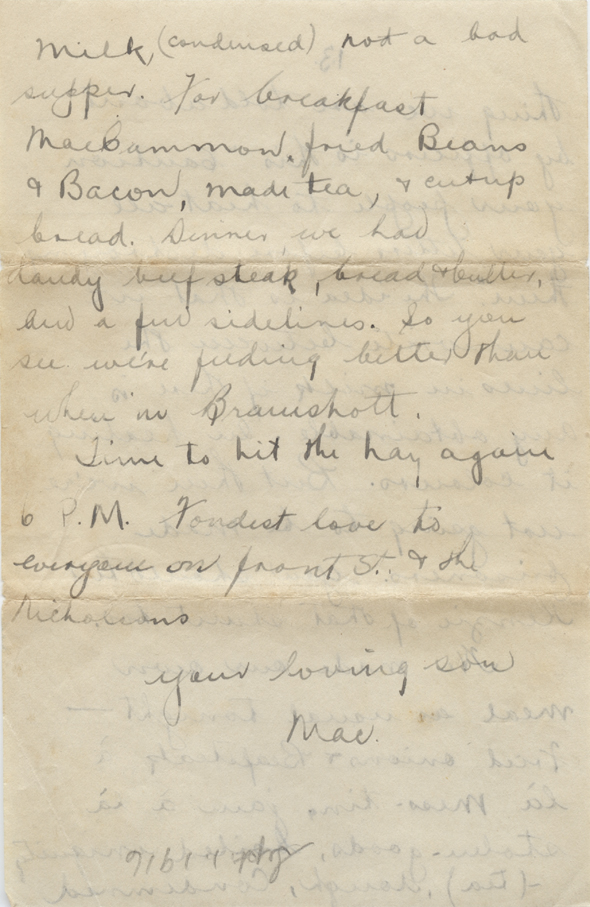 Milk, (condensed) not a bad
supper. For breakfast
MacCammon, fried Beans
& Bacon, made tea, & cut up
bread. Dinner, we had
dandy beef steak, bread & butter,
and a few sidelines. So you
see we're feeding better than
when in Bramshott.
Time to hit the hay again
6 P.M. Fondest love to
everyone on front St. & the
Nicholsons
your loving son
Mac.
1916